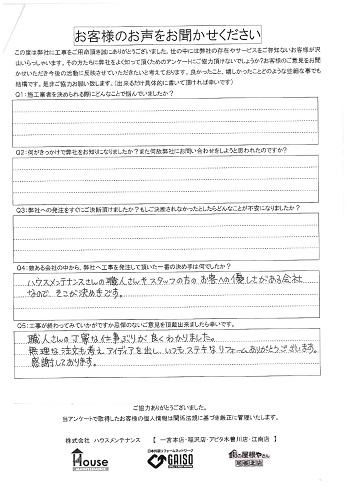 お客様のお声をお聞かせください
この度は弊社に工事をご用命頂き誠にありがとうございました。世の中には弊社の存在やサービスをご存知ないお客様が沢
山いらっしゃいます。その方たちに弊社をよく知って頂くためのアンケートにご協力頂けないでしょうか?お客様のご意見をお聞
かせいただき今後の活動に反映させていただきたいと考えております。良かったこと、嬉しかったことどのような些細な事でも
結構です。是非ご協力お願い致します。(出来るだけ具体的に書いて頂ければ幸いです)
Q1:施工業者を決められる際にどんなことで悩んでいましたか?
Q2:何がきっかけで弊社をお知りになりましたか?また何故弊社にお問い合わせをしようと思われたのですか?
Q3:弊社への発注をすぐにご決断頂けましたか?もしご決断されなかったとしたらどんなことが不安になりましたか?
Q4:数ある会社の中から、弊社へ工事を発注して頂いた一番の決め手は何でしたか?
ハウスメンテナンスさんの職人さんやスタッフの方のお客への優しさがある会社
なので、そこが決めてです。
Q5:工事が終わってみていかがですか忌憚のないご意見を頂戴出来ましたら幸いです。
職人さんの丁寧な仕事ぶりが良くわかりました。
無理な注文も考え アイディアを出し、いつもステキなリフォームありがとうございます。
感謝しております。
ご協力ありがとうございました。
当アンケートで取得したお客様の個人情報は関係法規に基づき厳正に管理いたします。
株式会社 ハウスメンテナンス 【 一宮本店・稲沢店・アピタ木曽川店・江南店 】
House
日本外装リフォームネットワーク
GAISO
街の屋根やさん